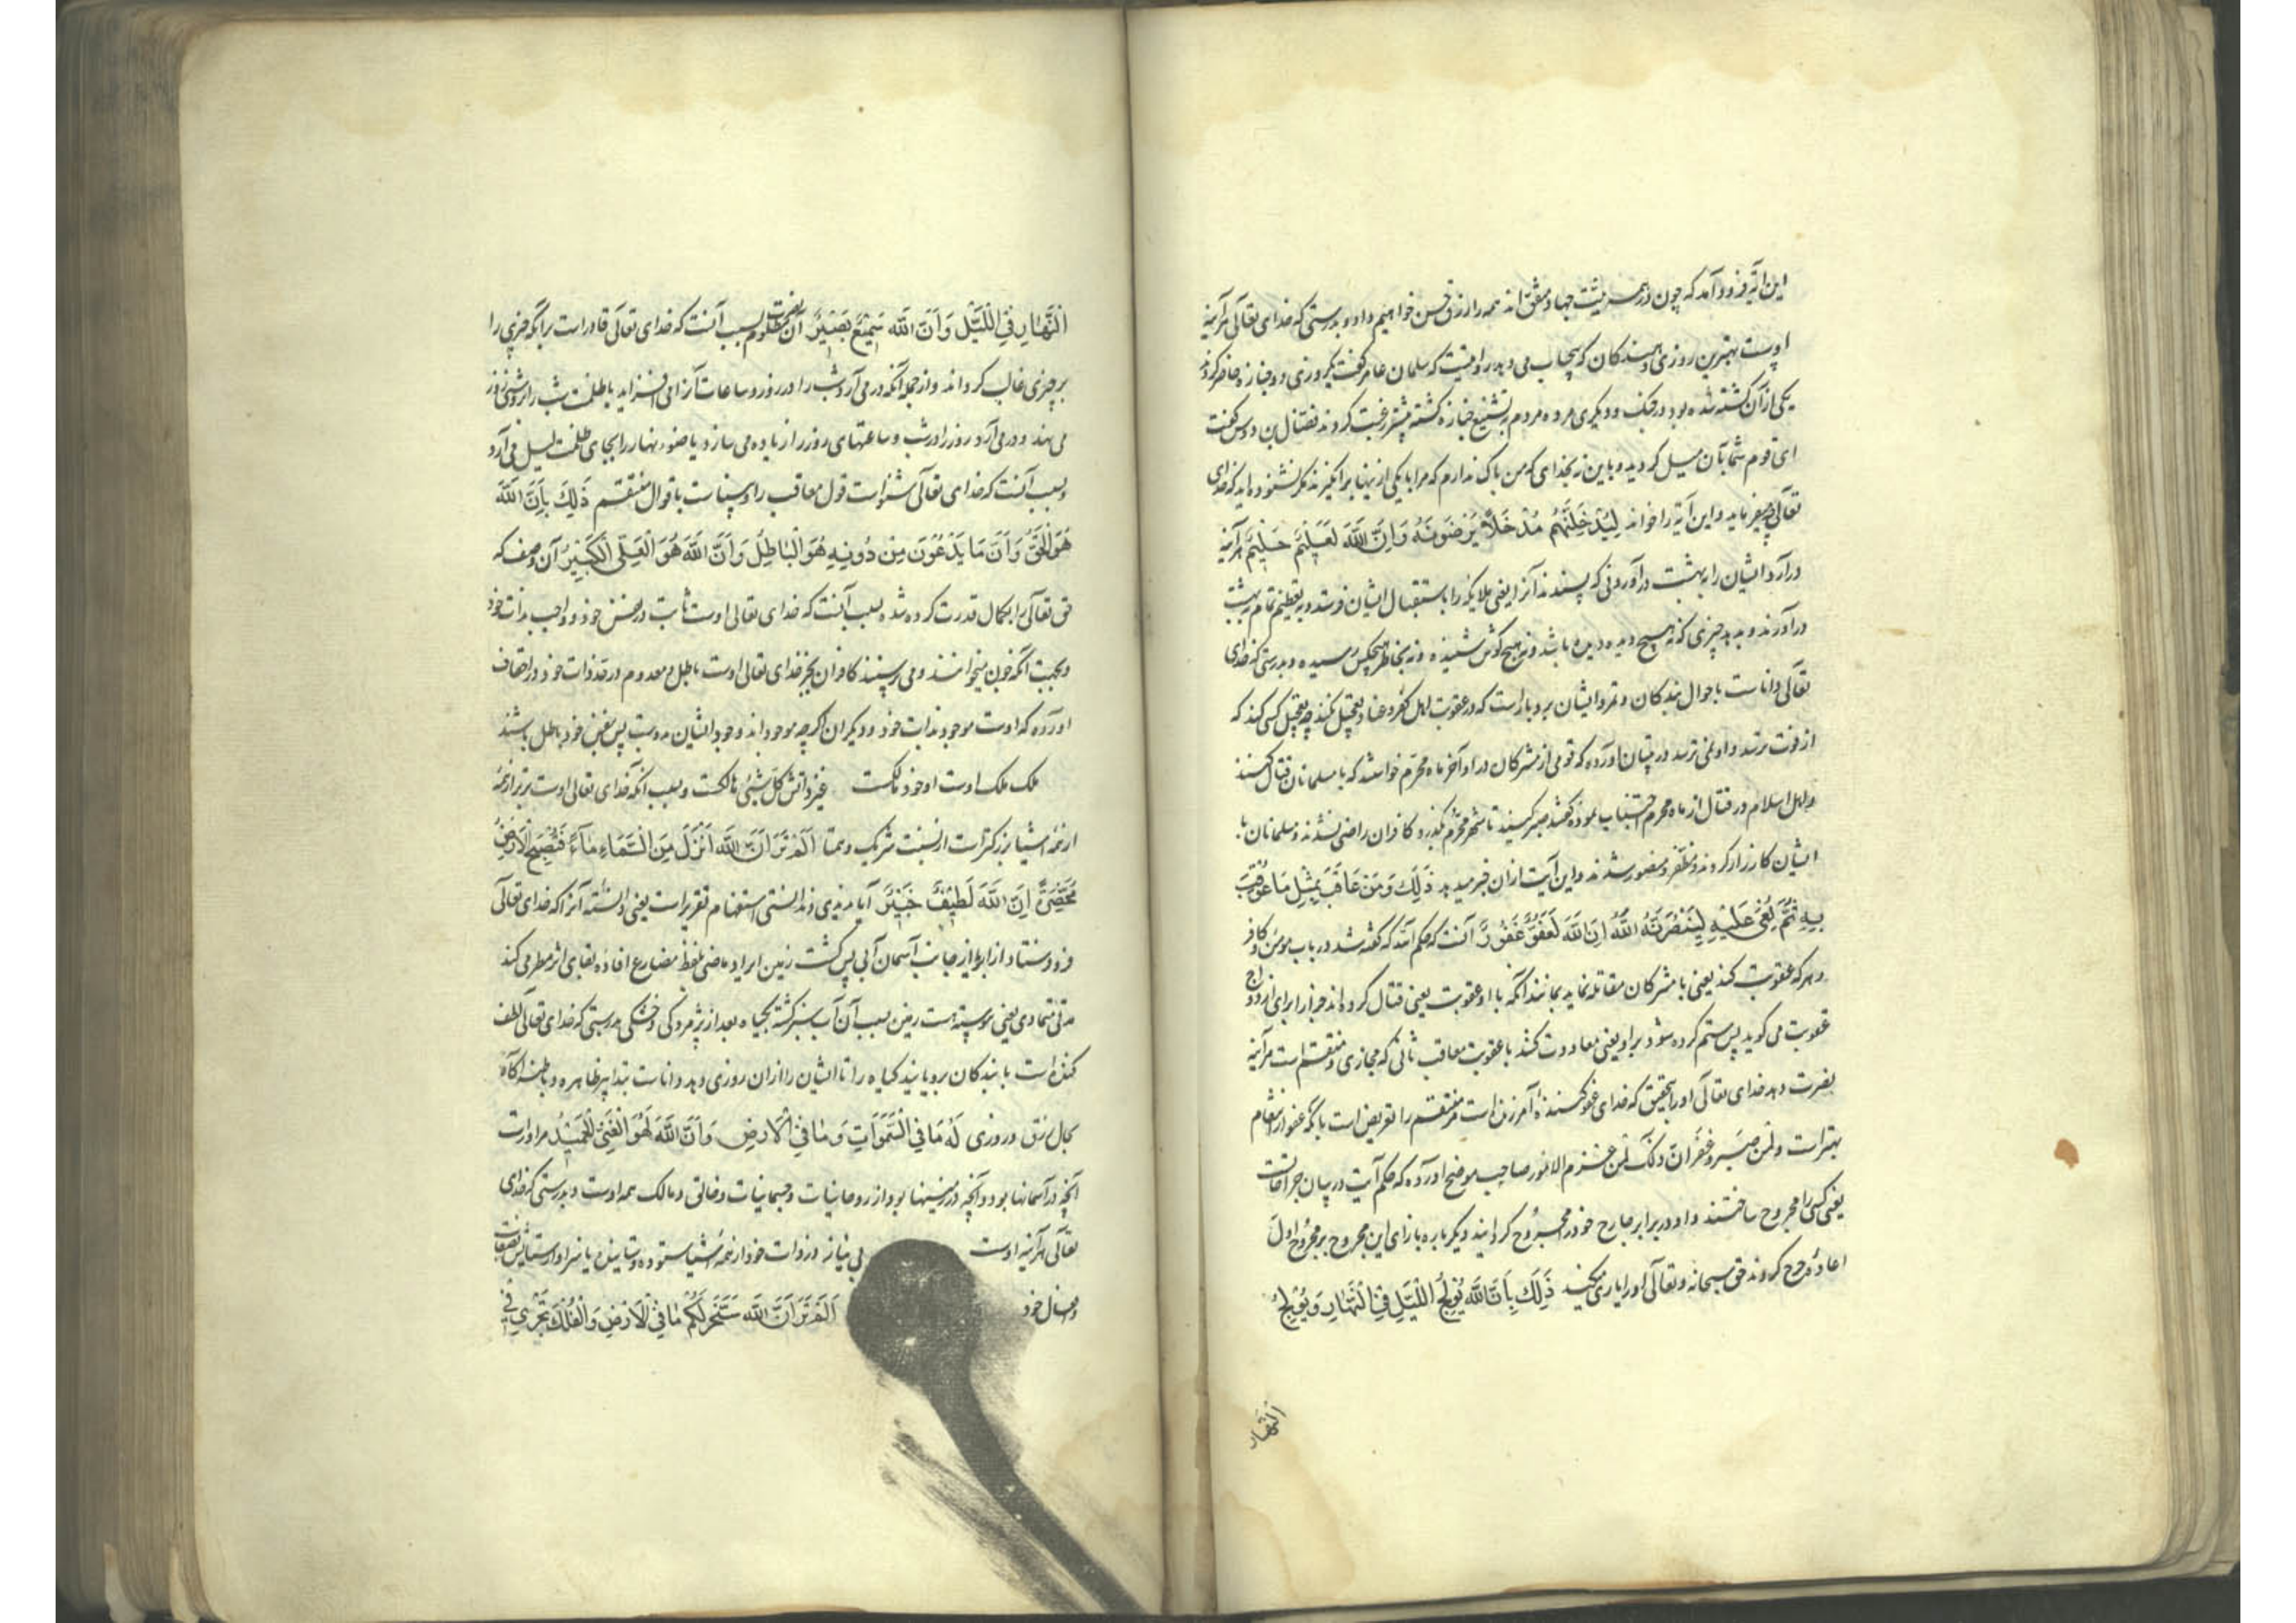 این آیه فرود آمد که چون در همه نیت جهاد متفق اند همه را رزق حسن خواهیم داد و بدرستی که خدای تعالی هرآینه
اوست بهترین روزی دهندگان که بیحساب می دهد راست که سلمان عامر گفت که روزی دو جنازه حاضر کردند
یکی از آن کشته شده بود در جنک و دیگری مرده مردم بتشییع جنازه کشته بیشتر رغبت کردند فضال بن دوس گفت
ای قوم شما بآن میل کردید و باین نه بخدای که من باک ندارم که مرا با یکی از اینها برانگیزند مگر نشنوده اید که خدای
تعالی چه میفرماید و این آیة را خواند لِیُدْخِلَنَّهُم مُدْخَلاً یَرْضَوْنَهُ وَاِنَّ اللّٰهَ لَعَلِیمٌ حَلِیمٌ هرآینه
درآرد ایشان را به بهشت درآوردنی که پسندند آنرا یعنی ملایکه را باستقبال ایشان فرستد و به تعظیم تمام به بهشت
درآورند و بدهد چیزی که نه هیچ دیده دیده باشد و نه هیچ گوش شنیده و نه بخاطر هیچکس رسیده و بدرستی که خدای
تعالی داناست باحوال بندکان و تمرد ایشان بردبار است که در عقوبت اهل کفر و عناد تعجیل نکند چه تعجیل کسی کند که
از فوت ترسد و او نمی ترسد در تبیان آورده که قومی از مشرکان در اواخر ماه محرم خواستند که با مسلمانان قتال کنند
و اهل اسلام در قتال از ماه محرم اجتناب نموده گفتند صبر کنید تا شهر محرم بگذرد کافران راضی نشدند و مسلمانان با
ایشان کارزار کردند و مظفر و منصور شدند و این آیت از ان خبر میدهد ذَلِكَ وَمَنْ عَاقَبَ بِمِثْلِ مَا عُوقِبَ
بِهِ ثُمَّ بُغِیَ عَلَیْهِ لَیَنْصُرَنَّهُ اللّٰهُ اِنَّ اللّٰهَ لَعَفُوٌّ غَفُورٌ آنست که حکم آمد که گفته شد در باب مومن و کافر
و هر که عقوبت کند یعنی با مشرکان مقاتله نماید بمانند آنکه با او عقوبت یعنی قتال کرده اند جزا را برای ازدواج
عقوبت می گوید پس ستم کرده شود بر او یعنی معاودت کنند با عقوبت معاقب ثانی که مجازی و منتقم است هرآینه
نصرت دهد خدای تعالی او را بتحقیق که خدای عفو کننده آمرزنده است مر منتقم را تعریض است بآنکه عفو از انتقام
بهتر است ولمن صبر و غفر ان ذلک لمن عزم الامور صاحب موضح آورده که حکم آیت در بیان جراحات
یعنی کسی را مجروح ساختند و او در برابر جارح خود را مجروح گردانید دیگرباره بازای این مجروح بر مجروح اول
اعاده جرح کردند حق سبحانه و تعالی او را یاری میکند ذَلِكَ بِاَنَّ اللّٰهَ یُولِجُ اللَّیْلَ فِی النَّهَارِ وَیُولِجُ
النهار
النَّهَارَ فِی اللَّیْلِ وَاَنَّ اللّٰهَ سَمِیعٌ بَصِیرٌ آن نصرت مظلوم بسبب آنست که خدای تعالی قادر است بر آنکه چیزی را
بر چیزی غالب کرداند و از جمله آنکه درمی آرد شب را در روز و ساعات آنرا می افزاید یا ظلمت شب را در روشنی روز
می نهد و درمی آرد روز را در شب و ساعتهای روز را زیاده می سازد یا ضوء نهار را بجای ظلمت لیل می آرد
و بسبب آنست که خدای تعالی شنواست قول معاقب را و بیناست باقوال منتقم ذَلِكَ بِاَنَّ اللّٰهَ
هُوَ الْحَقُّ وَاَنَّ مَا یَدْعُونَ مِنْ دُونِهِ هُوَ الْبَاطِلُ وَاَنَّ اللّٰهَ هُوَ الْعَلِیُّ الْكَبِیرُ آن وصف که
حق تعالی را بکمال قدرت کرده شد بسبب آنست که خدای تعالی اوست ثابت در نفس خود و واجب بذات خود
و بجهت آنکه خوبن میخوانند و می پرستند کافران بجز خدای تعالی اوست باطل و معدوم در حد ذات خود در اتحاف
آورده که اوست موجود بذات خود و دیکران اگرچه موجوداند وجود ایشان بدوست پس بنفس خود باطل باشند
ملک ملک اوست او خود مالکست غیر ذاتش کل شیئ هالکست و بسبب آنکه خدای تعالی اوست برتر از همه
از همه اشیا بزرکتر است از نسبت شریک و همتا اَلَمْ تَرَ اَنَّ اللّٰهَ اَنْزَلَ مِنَ السَّمَاءِ مَاءً فَتُصْبِحُ الْاَرْضُ
مُخْضَرَّةً اِنَّ اللّٰهَ لَطِیفٌ خَبِیرٌ آیا ندیدی و ندانستی استفهام تقریر است یعنی دانسته آنرا که خدای تعالی
فروفرستاد از ابر یا از جانب آسمان آبی پس گشت زمین ایراد ماضی بلفظ مضارع افاده بقای اثر مطر می کند
مدتی متمادی یعنی پیوسته هست زمین بسبب آن آب سبز کشته بکیاه بعد از پژمردکی و خشکی بدرستی که خدای تعالی لطف
کننده است با بندکان برویانید کیاه را تا ایشان را از ان روزی دهد و داناست بتدابیر ظاهره و باطنه آکاه
بحال رزق و روزی لَهُ مَا فِی السَّمٰوَاتِ وَمَا فِی الْاَرْضِ وَاِنَّ اللّٰهَ لَهُوَ الْغَنِیُّ الْحَمِیدُ مر او راست
آنچه در آسمانها بود و آنچه در زمینها بود از روحانیات و جسمانیات و خالق و مالک همه اوست و بدرستی که خدای
تعالی هرآینه اوست بی نیاز در ذات خود از همه اشیا ستوده و ستاینده یا سزاوار ستایش بصفات
و افعال خود اَلَمْ تَرَ اَنَّ اللّٰهَ سَخَّرَ لَكُمْ مَا فِی الْاَرْضِ وَالْفُلْكَ تَجْرِی فِی